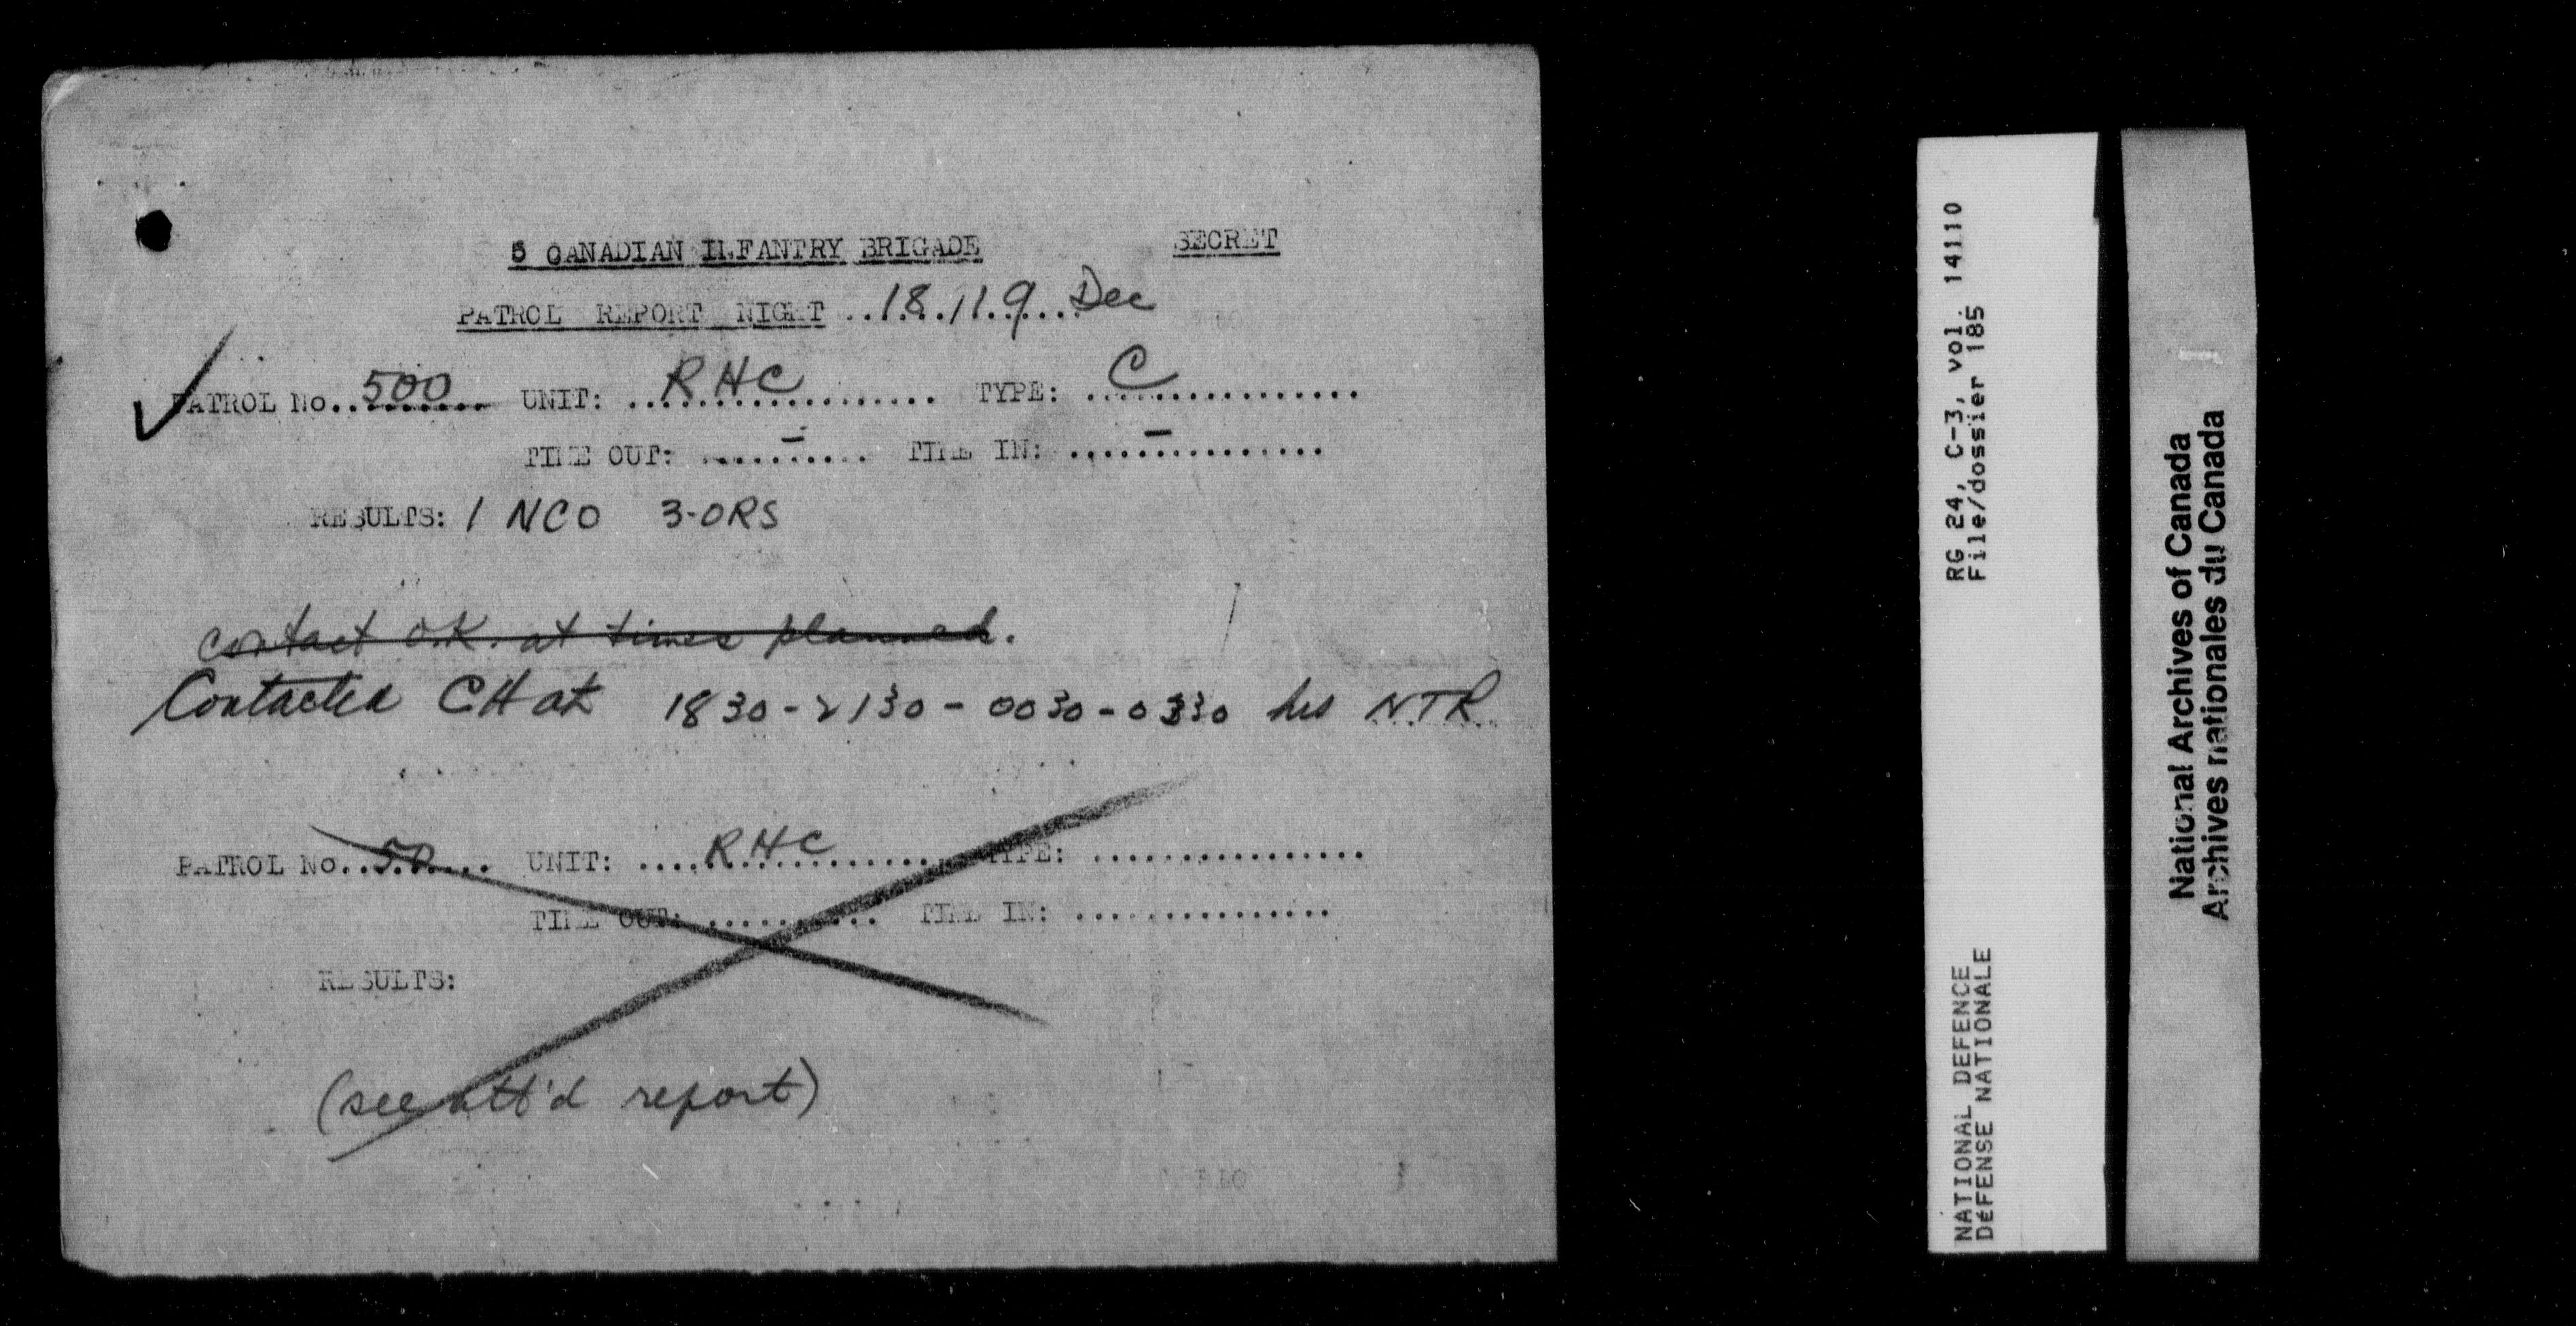 5 CANADIAN INFANTRY BRIGADE SECRET
PATROL REPORT NIGHT ..18../19....Dec
PATROL No..500...... UNIT: ....RHC.......... TYPE: ..C..............
TIME OUT: .....-..... TIME IN: .....-..........
RESULTS: 1 NCO 3-ORS
contact O.K. at times planned.
Contacted CH at 1830-2130-0030-0330 hrs NTR
PATROL No..50.... UNIT: ....RHC.......... TYPE: .................
TIME OUT: ........... TIME IN: ................
RESULTS:
(see att'd report)
RG 24, C-3, vol. 14110
File/dossier 185
NATIONAL DEFENCE
DéFENSE NATIONALE
National Archives of Canada
Archives nationales du Canada